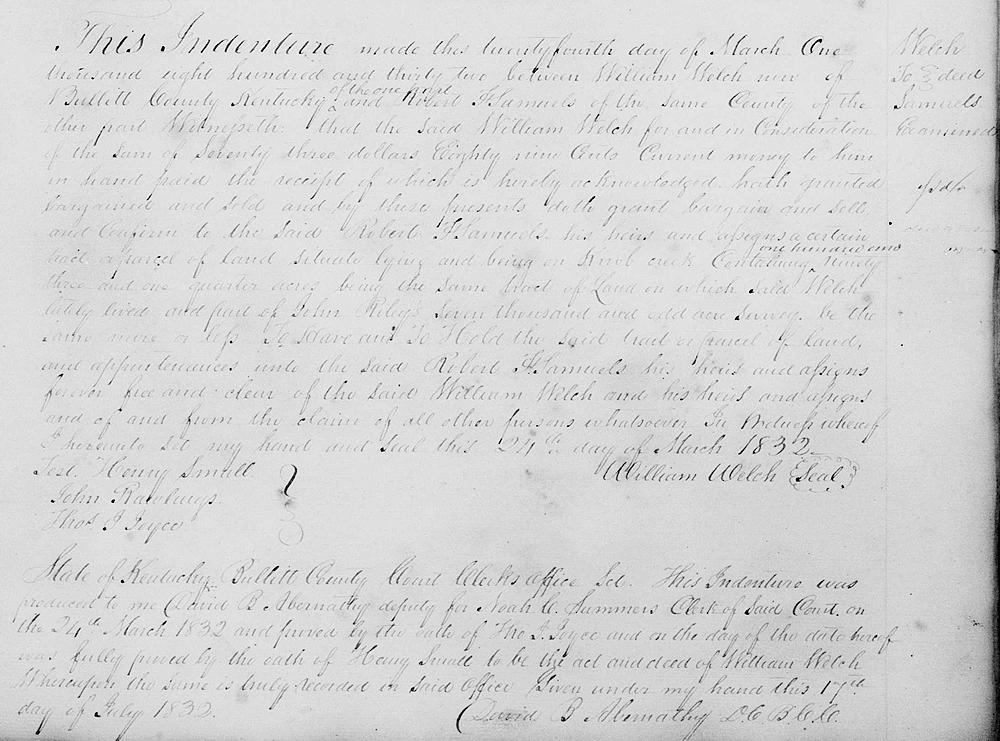 This Indenture made this twentyfourth day of March One
thousand eight hundred and thirty two between William Welch now of
Bullitt County Kentucky of the one part and Robert F Samuels of the same County of the
other part Witnesseth: that the said William Welch for and in Consideration
of the sum of Seventy three dollars Eighty nine Cents Current money to him
in hand paid the receipt of which is hereby acknowledged hath granted
bargained and sold and by these presents doth grant bargain and sell
and Confirm to the said Robert F Samuels his heirs and assigns a certain
tract or parcel of land situate lying and being on Knob creek Containing one hundred and Ninety
three and one quarter acres being the same tract of Land on which said Welch
lately lived and part of John Riley's Seven thousand and odd acre survey. be the
same more or less To Have and To Hold the said tract or parcel of land,
and appurtenances unto the said Robert F Samuels his heirs and assigns
forever free and clear of the said William Welch and his heirs and assigns
and of and from the claim of all other persons whatsoever In Witness whereof
I hereunto set my hand and seal this 24th day of March 1832
Test. Henry Small
William Welch (Seal)
John Rawlings
Thos J Joyce
State of Kentucky Bullitt County Court Clerks office Sct. This Indenture was
produced to me David B Abernathy deputy for Noah C. Summers Clerk of said Court, on
the 24th March 1832 and proved by the oath of Tho J. Joyce and on the day of the date hereof
was fully proved by the oath of Henry Small to be the act and deed of William Welch
Whereupon the same is truly recorded in said office Given under my hand this 17th
day of July 1832.
David B Abernathy D.C.B.C.C.
Welch
To } deed
Samuels
Examined